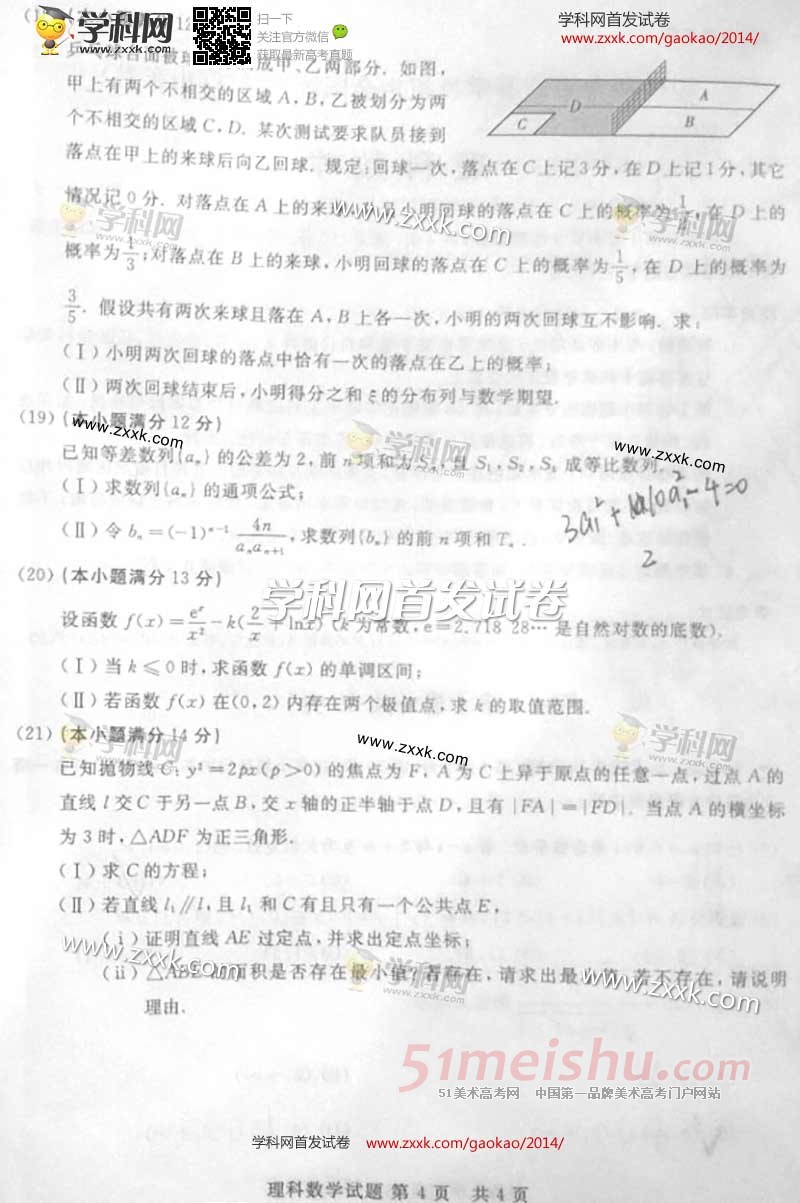 学科网
www.zxxk.com
扫一下
关注官方微信
获取最新高考真题
学科网首发试卷
www.zxxk.com/gaokao/2014/
乒乓球台面被球网分成甲、乙两部分. 如图,
甲上有两个不相交的区域 A, B, 乙被划分为两
个不相交的区域 C, D. 某次测试要求队员接到
落点在甲上的来球后向乙回球. 规定:回球一次,落点在 C 上记 3 分, 在 D 上记 1 分, 其它
情况记 0 分. 对落点在 A 上的来球,队员小明回球的落点在 C 上的概率为 , 在 D 上的
概率为 1/3 ;对落点在 B 上的来球, 小明回球的落点在 C 上的概率为 1/5 , 在 D 上的概率为
3/5 . 假设共有两次来球且落在 A, B 上各一次, 小明的两次回球互不影响. 求:
(Ⅰ) 小明两次回球的落点中恰有一次的落点在乙上的概率;
(Ⅱ) 两次回球结束后, 小明得分之和 ξ 的分布列与数学期望.
(19) (本小题满分 12 分)
已知等差数列{aₙ} 的公差为 2, 前 n 项和为 Sₙ, 且 S₁, S₂, S₄ 成等比数列.
(Ⅰ) 求数列{aₙ} 的通项公式;
(Ⅱ) 令 bₙ=(−1)ⁿ⁻¹ 4n/(aₙaₙ₊₁) , 求数列{bₙ} 的前 n 项和 Tₙ.
(20) (本小题满分 13 分)
设函数 f(x)= eˣ/x² − k(2/x + lnx) (k 为常数, e=2.718 28… 是自然对数的底数).
(Ⅰ) 当 k ⩽ 0 时, 求函数 f(x) 的单调区间;
(Ⅱ) 若函数 f(x) 在(0, 2) 内存在两个极值点, 求 k 的取值范围.
(21) (本小题满分 14 分)
已知抛物线 C: y²=2px(p>0) 的焦点为 F, A 为 C 上异于原点的任意一点, 过点 A 的
直线 l 交 C 于另一点 B, 交 x 轴的正半轴于点 D, 且有 |FA|=|FD|. 当点 A 的横坐标
为 3 时, △ADF 为正三角形.
(Ⅰ) 求 C 的方程;
(Ⅱ) 若直线 l₁∥l, 且 l₁ 和 C 有且只有一个公共点 E,
(ⅰ) 证明直线 AE 过定点, 并求出定点坐标;
(ⅱ) △ABE 的面积是否存在最小值? 若存在, 请求出最小值, 若不存在, 请说明
理由.
51meishu.com
51美术高考网 中国第一品牌美术高考门户网站
学科网首发试卷 www.zxxk.com/gaokao/2014/
理科数学试题 第 4 页 共 4 页